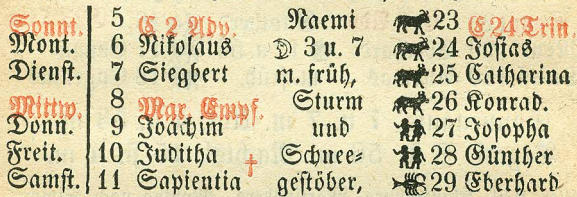 Sonnt. 5 C 2 Adv. Naemi 23 E 24 Trin.
Mont. 6 Nikolaus ☽ 3 u. 7 24 Josias
Dienst. 7 Siegbert m. früh, 25 Catharina
Mittw. 8 Mar. Empf. Sturm 26 Konrad.
Donn. 9 Joachim und 27 Josopha
Freit. 10 Juditha † Schnee- 28 Günther
Samst. 11 Sapientia gestöber, 29 Eberhard